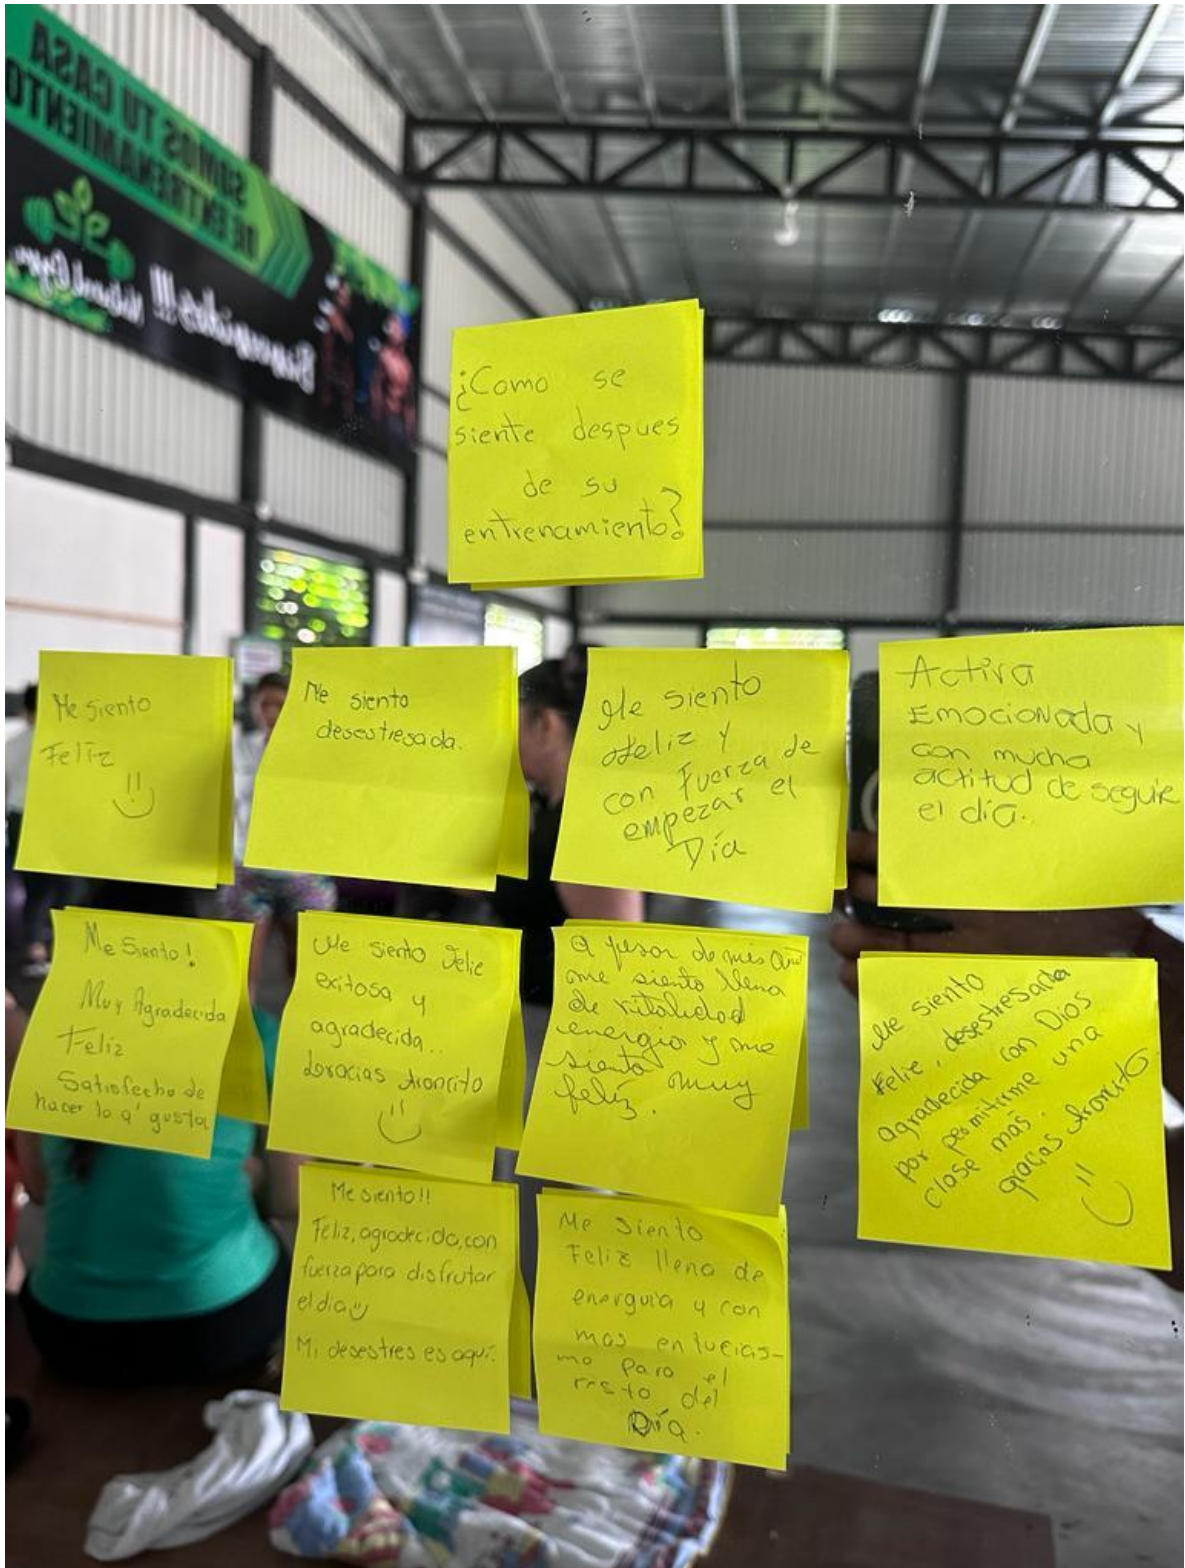 SOMOS TU CASA
DE ENTRENAMIENTO
Bienvenidos!!!
¿Como se
siente despues
de su
entrenamiento?
Me siento
Feliz
Me siento
desestresada.
Me siento
feliz y
con fuerza de
empezar el
Día
Activa
Emocionada y
con mucha
actitud de seguir
el día.
Me Siento!
Muy Agradecida
Feliz
Satisfecho de
hacer lo q' gusta
Me siento Felic
exitosa y
agradecida..
Gracias Aroncito
A pesar de mis
me siento llena
de vitalidad
energia y me
siento muy
feliz.
Me siento
Felic, desestresada
agradecida con Dios
por permitirme una
clase más.
gracias Aroncito
Me siento!!
Feliz, agradecido, con
fuerza para disfrutar
el dia
Mi desestres es aquí.
Me Siento
Feliz llena de
energuia y con
mas entucias-
mo para el
resto del
Día.